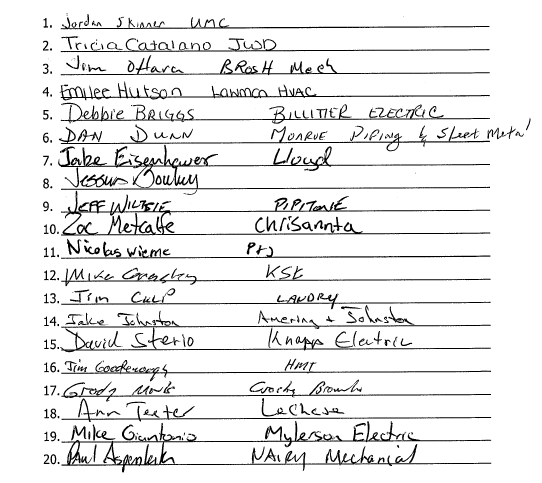 1. Jordan Skinner UMC
2. Tricia Catalano JWD
3. Jim OHara BRosH Mech
4. Emilee Hutson Lawman HVAC
5. Debbie BRIGGS BILLITIER ELECTRIC
6. DAN DUNN MONROE PIPING & Sheet Metal
7. Jake Eisenhower Lloyd
8.
9. JEFF WILTSIE PIPITONE
10. Zac Metcalfe Chrisannta
11. Nicolas Wieme P+J
12. Mike KSE
13. Jim CULP LANDRY
14. Jake Johnston Amering & Johnston
15. David Sterio Knapp Electric
16. Jim Gooderough HMT
17. Grady
18. Ann Teeter LeChase
19. Mike Giantonio Mylerson Electric
20. Paul NAIRY Mechanical